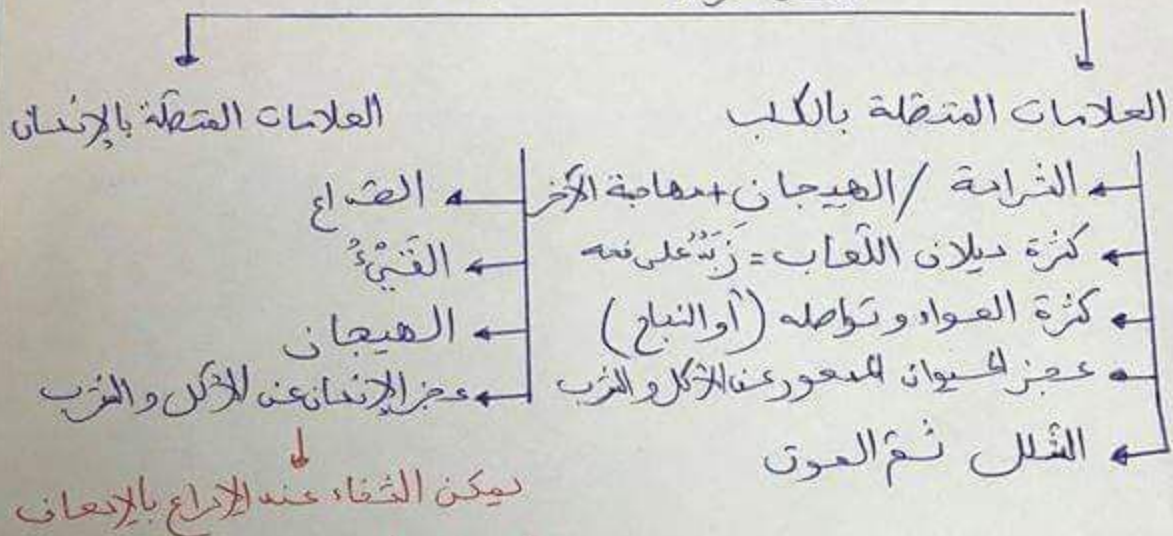 العلامات المتصلة بالكلب
الشراسة / الهيجان + مهاجمة الآخر
كثرة سيلان اللّعاب = زَبَدٌ على فمه
كثرة العواء و تواصله (أو النباح)
عجز الحيوان المسعور عن الأكل والشرب
الشّلل ثمّ الموت
العلامات المتصلة بالإنسان
الصّداع
القَيْءُ
الهيجان
عجز الإنسان عن الأكل والشرب
يمكن الشّفاء عند الإسراع بالإسعاف